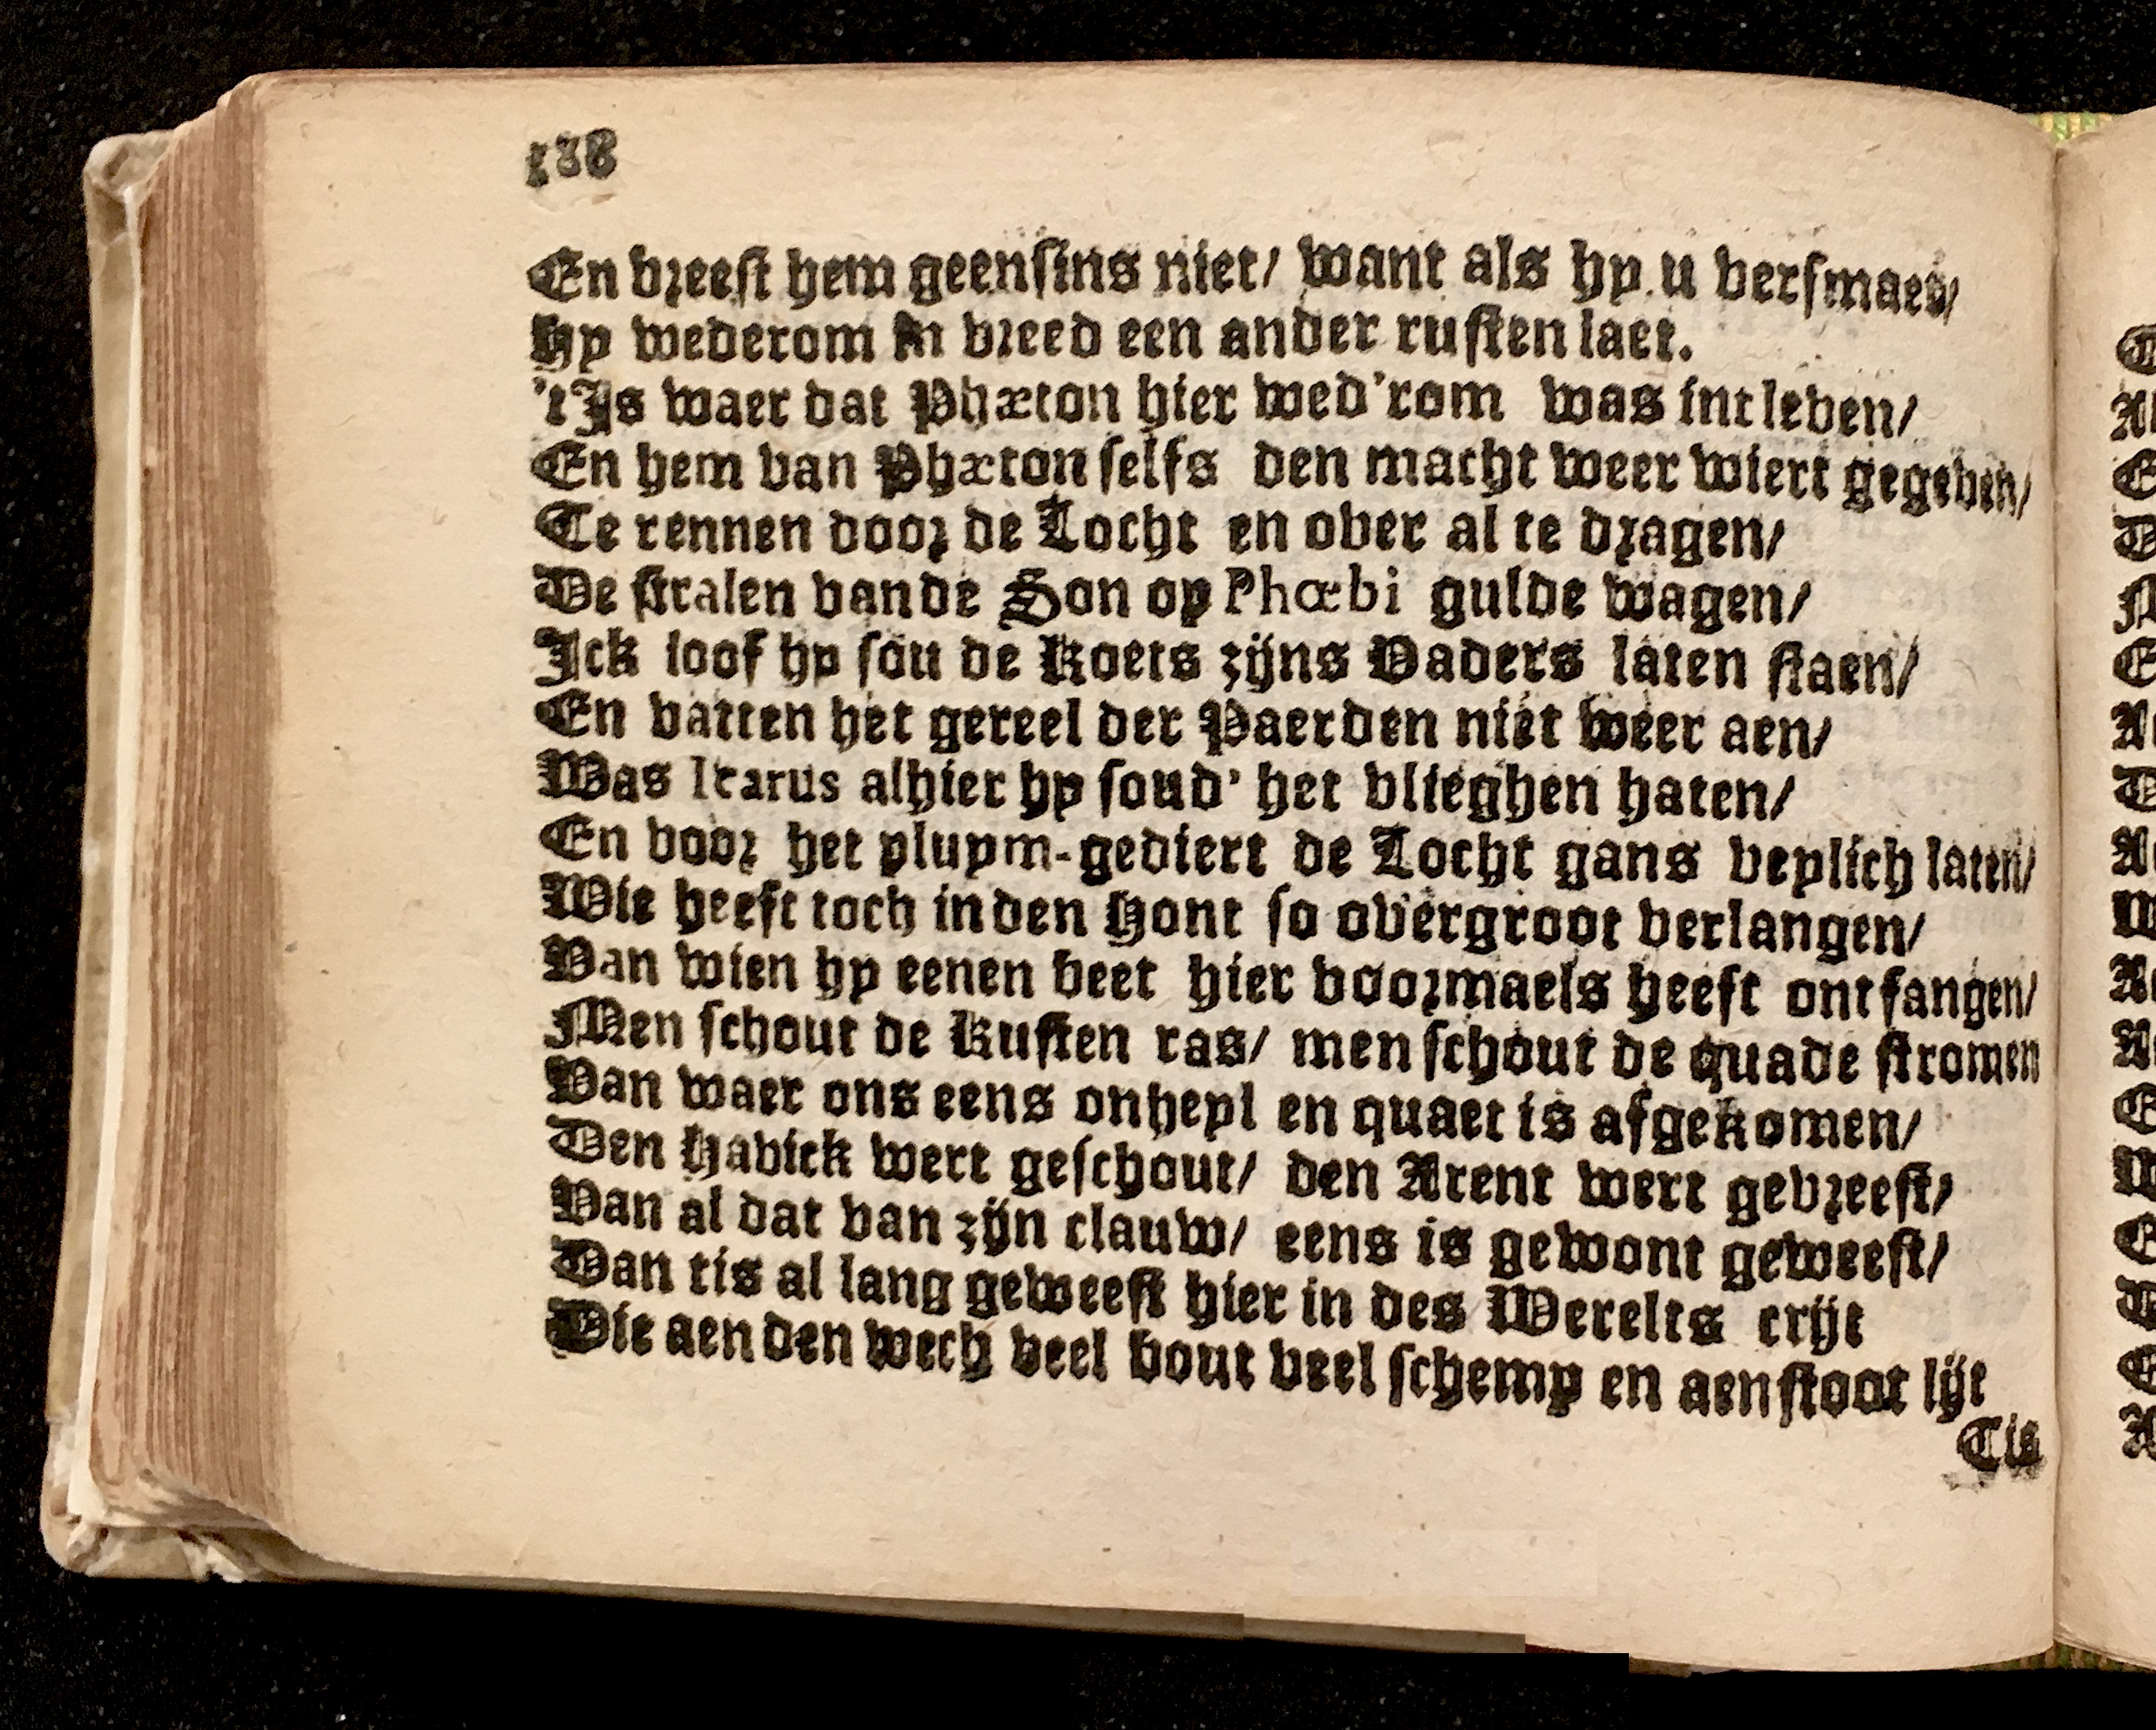 128
En vreest hem geensins niet/ want als hy u versmaet/
Hy wederom in vreed een ander rusten laet.
't Is waer dat Phæton hier wed'rom was int leven/
En hem van Phæton selfs den macht weer wiert gegeven/
Te rennen door de Locht en over al te dragen/
De stralen vande Son op Phœbi gulde wagen/
Ick loof hy sou de Koets zijns Vaders laten staen/
En vatten het gereel der Paerden niet weer aen/
Was Icarus alhier hy soud' het vlieghen haten/
En voor het pluym-gediert de Locht gans veylich laten/
Wie heeft toch in den Hont so overgroot verlangen/
Van wien hy eenen beet hier voormaels heeft ontfangen/
Men schout de Kusten ras/ men schout de quade stromen
Van waer ons eens onheyl en quaet is afgekomen/
Den Havick wert geschout/ den Arent wert gevreest/
Van al dat van zijn clauw/ eens is gewont geweest/
Dan tis al lang geweest hier in des Werelts crijt
Die aen den wech veel bout veel schemp en aenstoot lijt
Tis